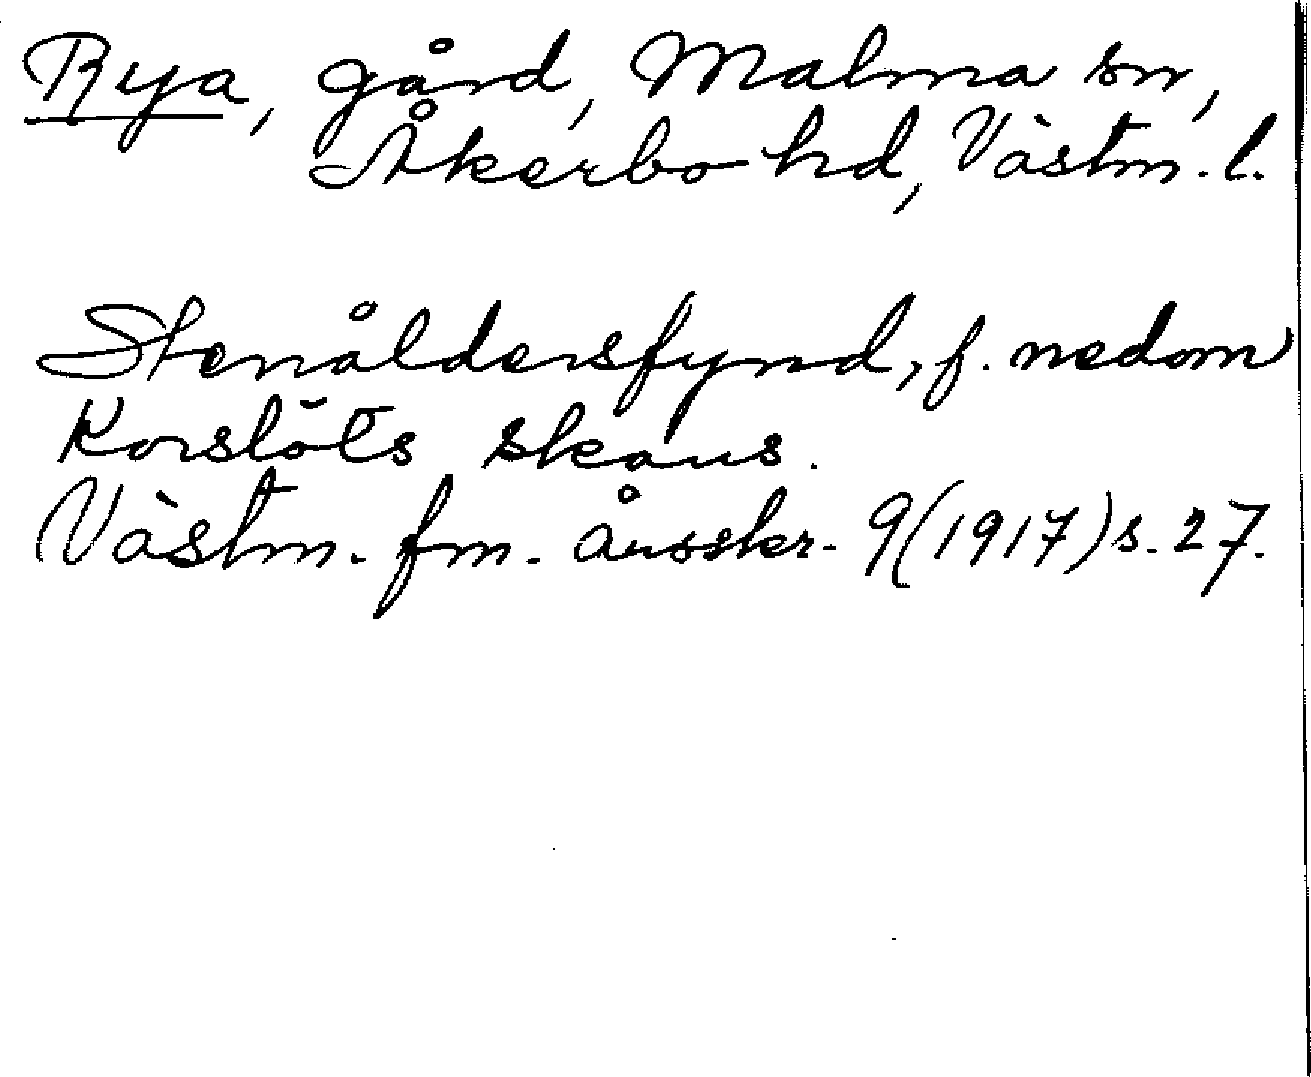 Rya, gård, Malma sn,
Åkerbo hd, Västm. l.
Stenåldersfynd, f. nedom
Korslöts skans.
Västm. fm. årsskr. 9(1917) s. 27.